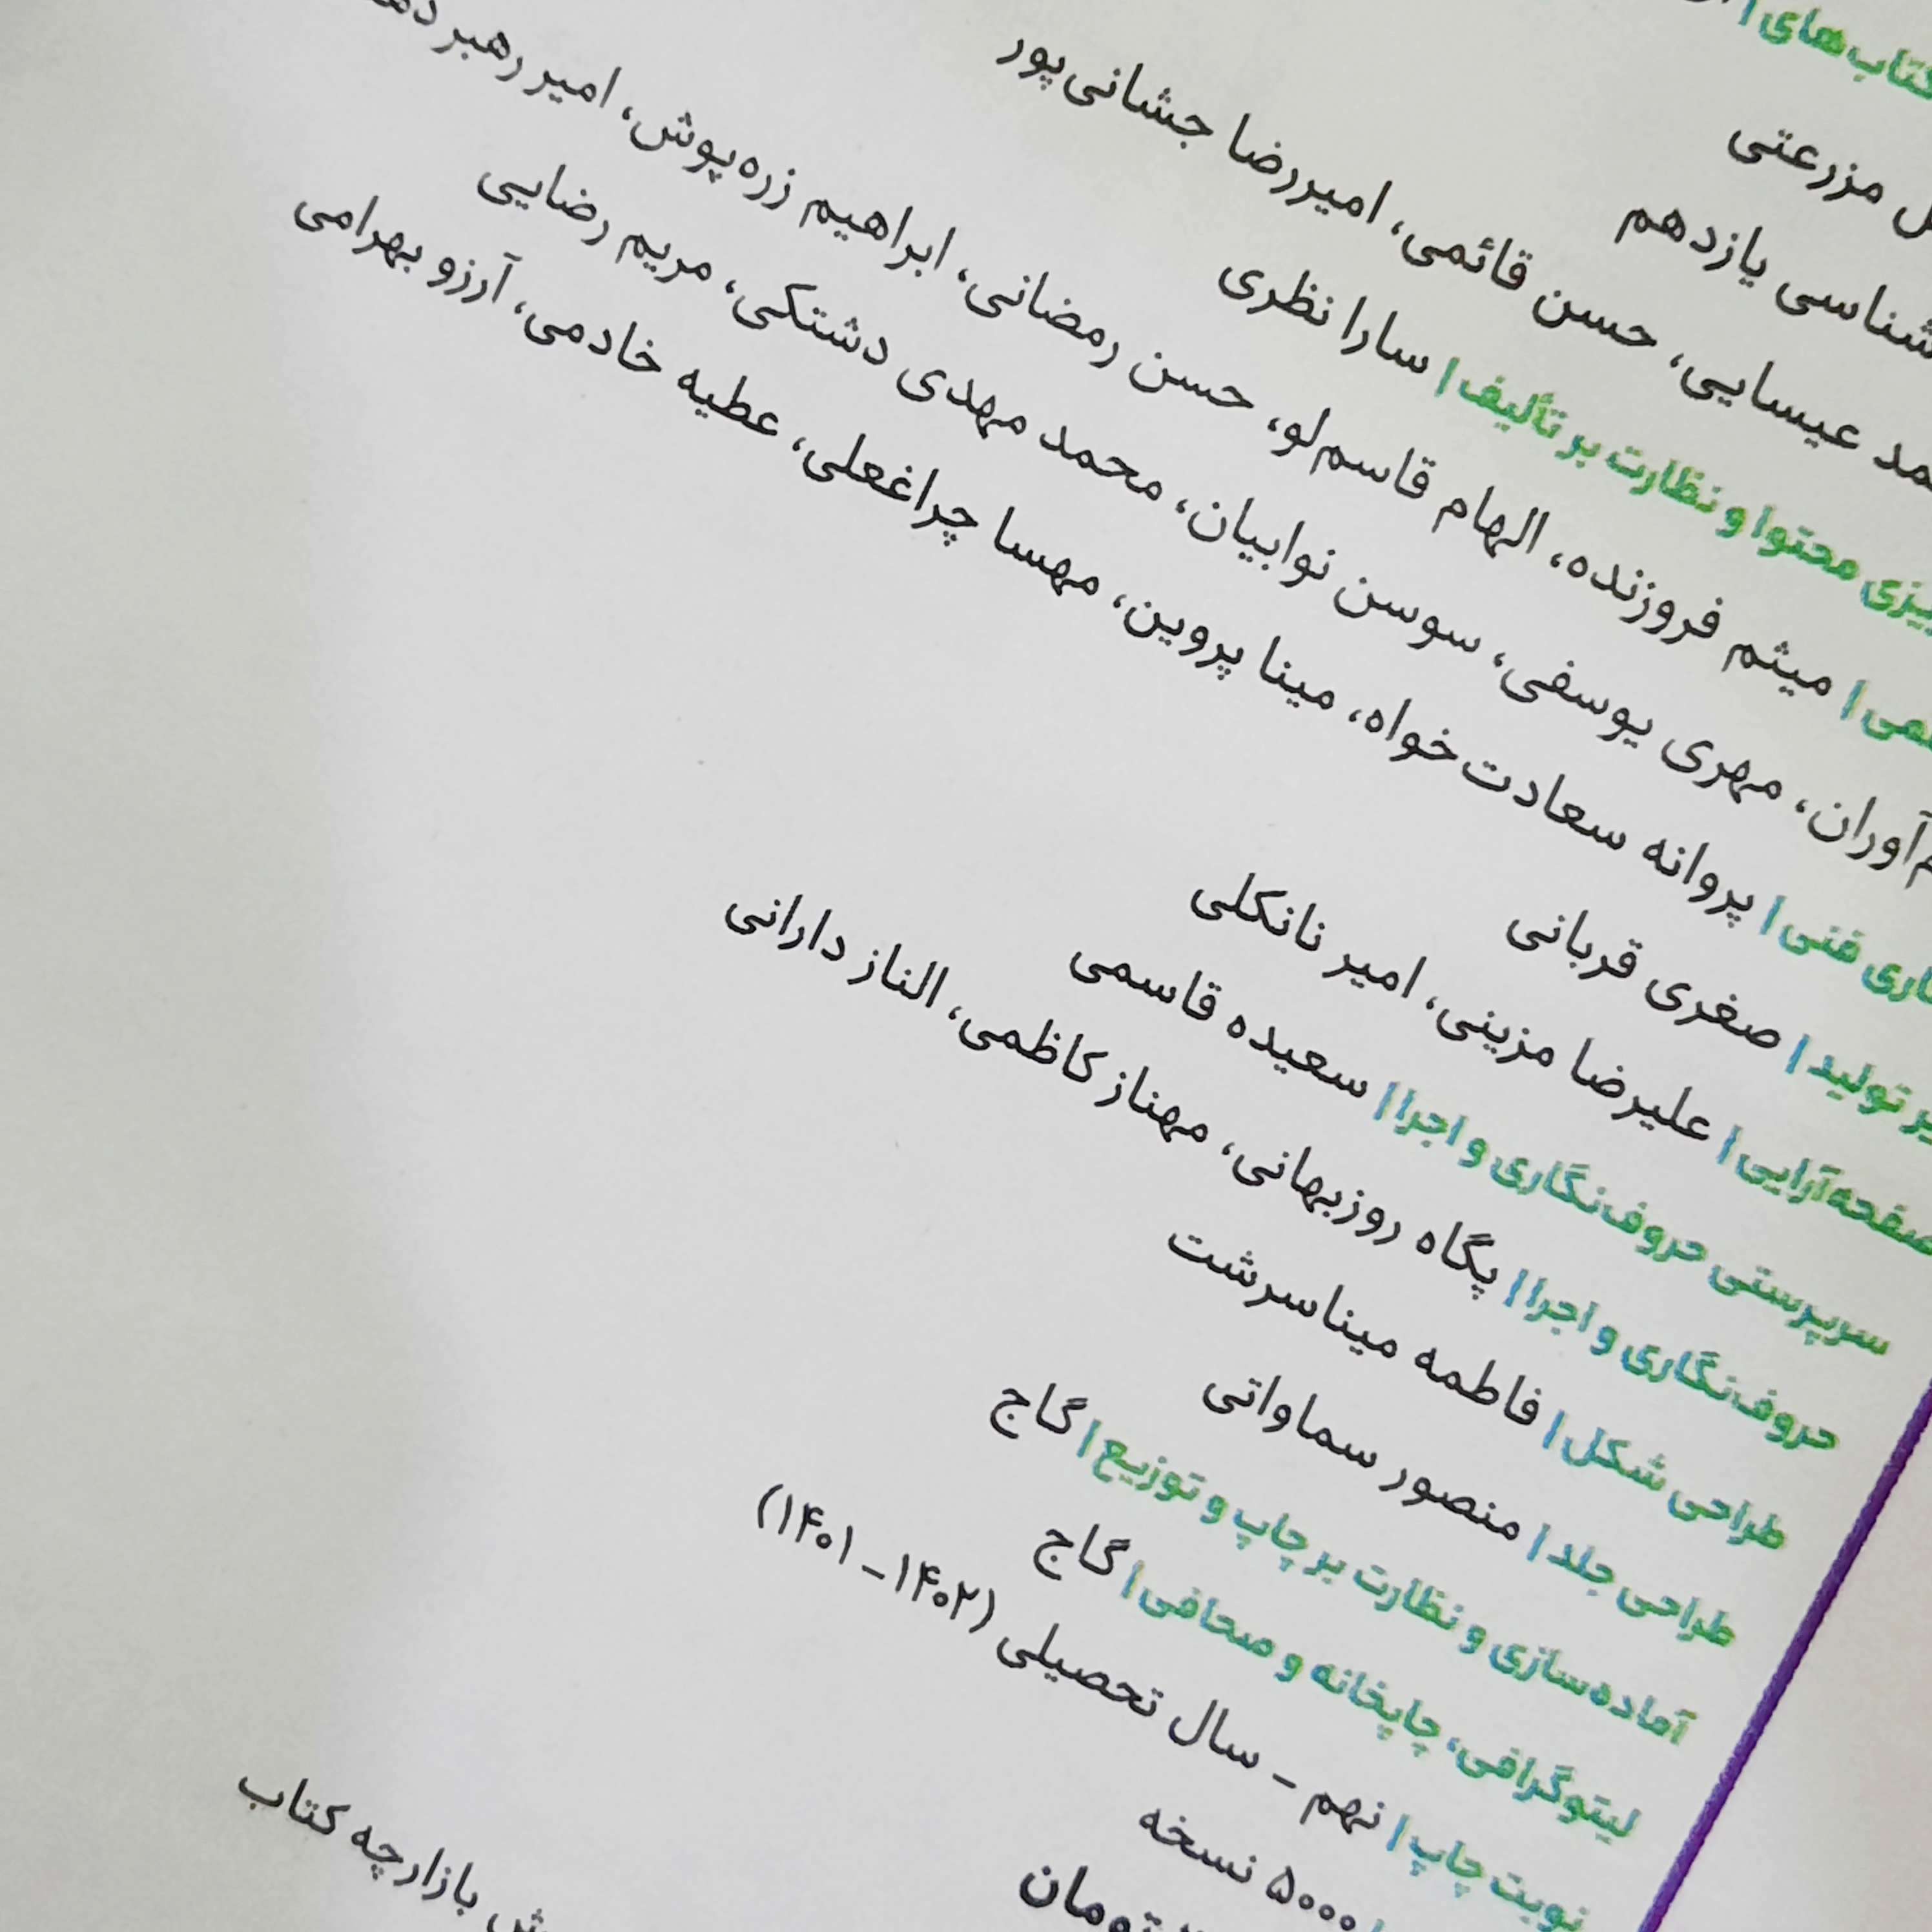 کتاب‌های |
مزرعتی
شناسی یازدهم
عیسایی، حسن قائمی، امیررضا جشانی‌پور
محتوا و نظارت بر تألیف | سارا نظری
میثم فروزنده، الهام قاسم‌لو، حسن رمضانی، ابراهیم زره‌پوش، امیر رهبر
آوران، مهری یوسفی، سوسن نوابیان، محمد مهدی دشتکی، مریم رضایی
فنی | پروانه سعادت‌خواه، مینا پروین، مهسا چراغعلی، عطیه خادمی، آرزو بهرامی
تولید | صغری قربانی
صفحه‌آرایی | علیرضا مزینی، امیر نانکلی
سرپرستی حروف‌نگاری و اجرا | سعیده قاسمی
حروف‌نگاری و اجرا | پگاه روزبهانی، مهناز کاظمی، الناز دارانی
طراحی شکل | فاطمه میناسرشت
طراحی جلد | منصور سماواتی
آماده‌سازی و نظارت بر چاپ و توزیع | گاج
لیتوگرافی، چاپخانه و صحافی | گاج
نوبت چاپ | نهم - سال تحصیلی (۱۴۰۲ - ۱۴۰۱)
۵۰۰۰ نسخه
تومان
بازارچه کتاب